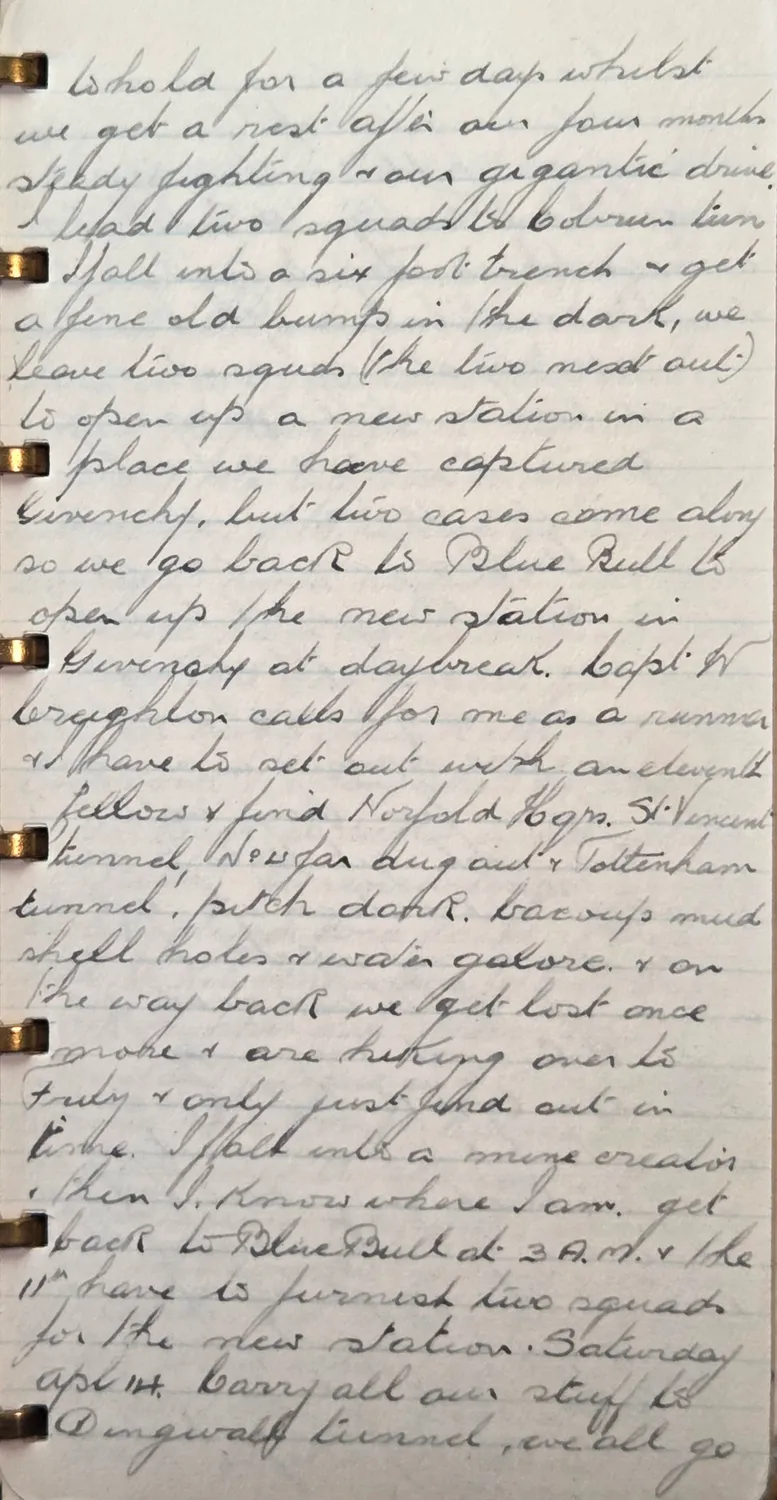 to hold for a few days whilst
we get a rest after our four months
steady fighting & our gigantic drive.
I lead two squads to Cobrun tun
I fall into a six foot trench & get
a fine old bump in the dark, we
leave two squds (the two next out)
to open up a new station in a
place we have captured
Givenchy, but two cases come along
so we go back to Blue Bull to
open up the new station in
Givenchy at daybreak. Capt W
Creighton calls for me as a runner
& I have to set out with an eleventh
fellow & find Norfold Hqrs. St. Vincent
tunnel, dug out & Tottenham
tunnel, pitch dark. mud
shell holes & water galore. & on
the way back we get lost once
more & are hiking over to
& only just find out in
time. I fall into a mine creator
& then I know where I am. get
back to Blue Bull at 3 A.M. & the
11th have to furnish two squads
for the new station. Saturday
Apl 14. Carry all our stuff to
Dingwall tunnel, we all go